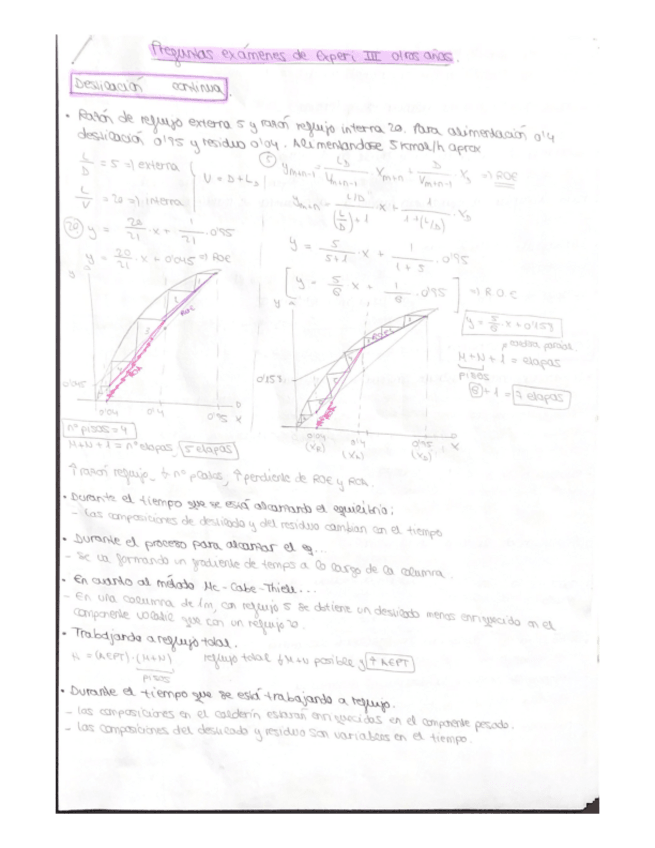 Preguntas exámenes de Experi III otros años.
Destilación continua.
• Razón de reflujo externa 5 y razón reflujo interna 20. Para alimentación 0'4
destilación 0'95 y residuo 0'04. Alimentandose 5 kmol/h aprox
L/D = 5 => externa
L/V = 20 => interna
V = D + L_D
⑤ y_m+n = L_D/V_m+n-1 · x_m+n + D/V_m+n-1 · x_D => ROE
y_m+n = (L/D)/((L/D)+1) · x + 1/(1+(L/D)) · x_D
⑳ y = 20/21 · x + 1/21 · 0'95
y = 20/21 · x + 0'045 => ROE
y = 5/(5+1) · x + 1/(1+5) · 0'95
[y = 5/6 x + 1/6 · 0'95] => ROE
y = 5/6 x + 0'153
M+N+1 = etapas
pisos
6+1 = 7 etapas
y
ROE
0'045
0'04
0'4
0'95
x
y
0'153
0'04
(x_R)
0'4
0'95
(x_D)
x
nº pisos = 4
M+N+1 = nº etapas
5 etapas
↑ razón reflujo, nº platos, ↑ pendiente de ROE y ROA.
• Durante el tiempo que se está alcanzando el equilibrio:
- Las composiciones de destilado y del residuo cambian con el tiempo
• Durante el proceso para alcanzar el eq...
- Se va formando un gradiente de temps a lo largo de la columna.
• En cuanto al método Mc-Cabe-Thiele...
- En una columna de 1m, con reflujo 5 se obtiene un destilado menos enriquecido en el
componente volátil que con un reflujo 20.
• Trabajando a reflujo total.
h = (AEPT)·(M+N)
pisos
reflujo total M+N posible y ↑ AEPT
• Durante el tiempo que se está trabajando a reflujo.
- las composiciones en el calderín estarán enriquecidas en el componente pesado.
- Las composiciones del destilado y residuo son variables en el tiempo.